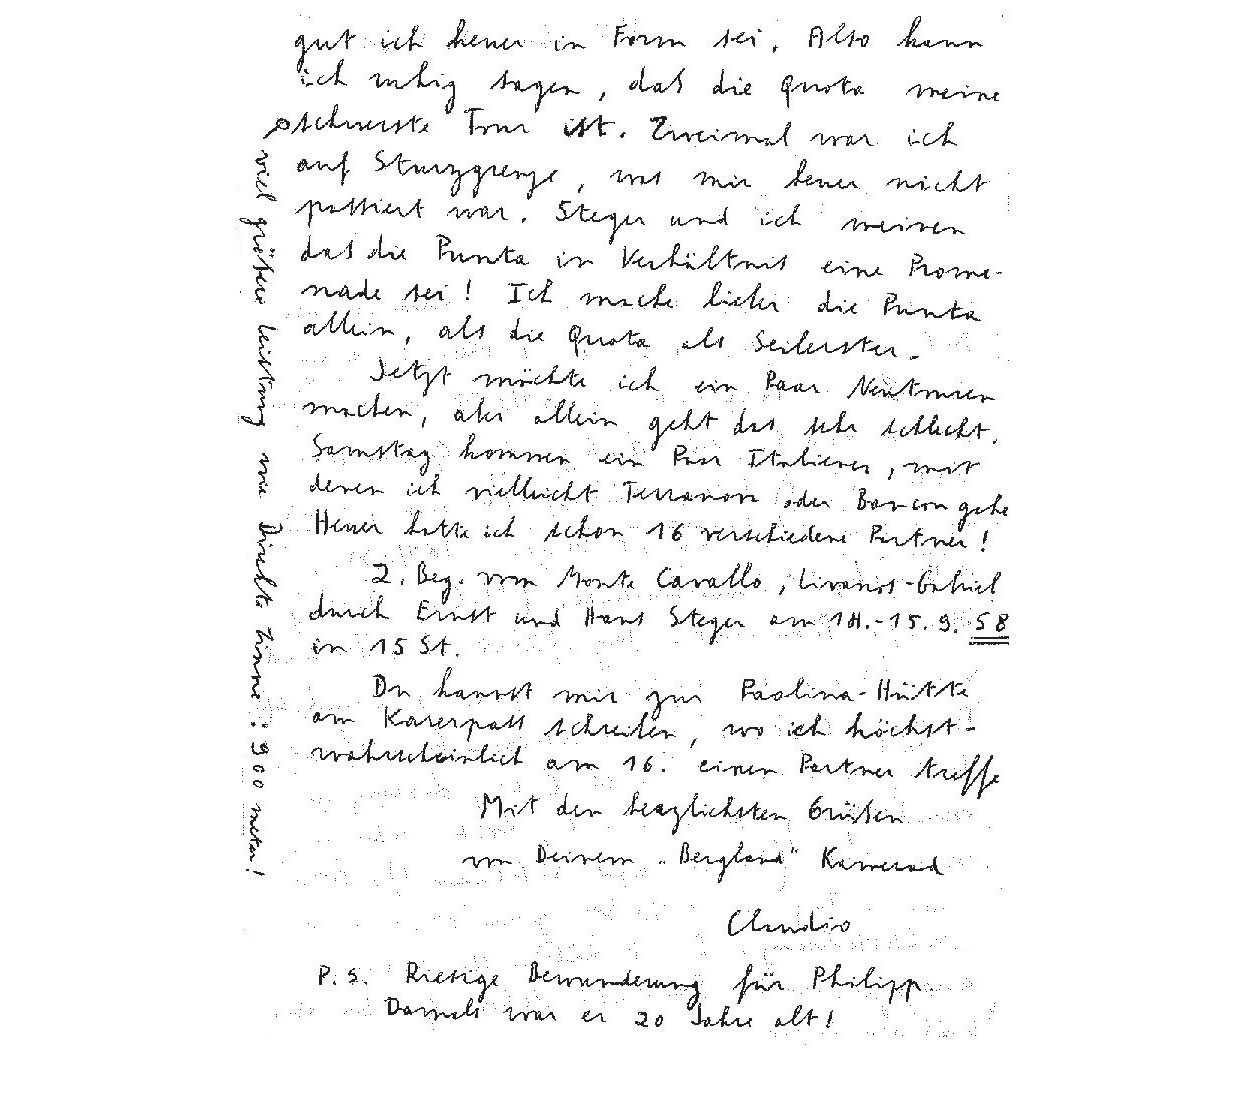 gut ich heuer in Form sei. Also kann
ich ruhig sagen, daß die Quota meine
schwerste Tour ist. Zweimal war ich
auf Sturzgrenze, was mir heuer nicht
passiert war. Steger und ich meinen
das die Punta in Verhältnis eine Prome-
nade sei! Ich mache lieber die Punta
allein, als die Quota als Seilerster.
Jetzt möchte ich ein Paar Neutouren
machen, aber allein geht das sehr schlecht.
Samstag kommen ein Paar Italiener, mit
denen ich vielleicht Terranova oder Bancon gehe
Heuer hatte ich schon 16 verschiedene Partner!
2. Beg. vom Monte Cavallo, Livanos-Gabriel
durch Ernst und Hans Steger am 14.-15. 9. 58
in 15 St.
Du kannst mir zur Paolina-Hütte
am Karerpass schreiben, wo ich höchst-
wahrscheinlich am 16. einen Partner treffe
Mit den herzlichsten Grüßen
von Deinem „Bergland" Kamerad
Claudio
P.S. Riesige Bewunderung für Philipp.
Damals war er 20 Jahre alt!
viel größere Leistung wie Direkte Zinne: 900 meter!